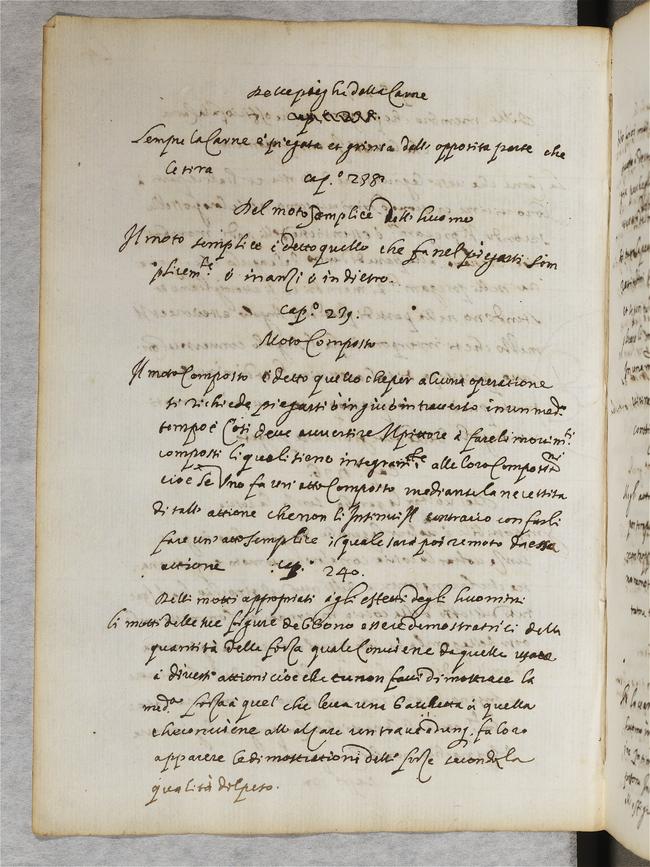 Delle pieghi della Carne
Sempre la Carne è piegata et grinsa dall' opposita parte che
le tira cap.º 238
Del moto semplice dell' huomo
Il moto semplice è detto quello che fa nel piegarsi sem
plicem.te ò inanzi ò indietro.
cap.º 239.
Moto Composto
Il moto Composto è detto quello che per alcuna operatione
si richiede piegarsi ò in giù ò in traverso in un med.º
tempo è Così deve avvertire Il pittore à fare li movim.ti
composti li quali sieno integram.te alle loro Compositioni
cioè se Uno fa un atto Composto mediante la necessità
di tale attione che non li Intimiti Il contrario con farli
fare un' atto semplice il quale sarà poi remoto da essa
attione cap.º 240.
Delli motti appropriati agli effetti degli huomini
li motti delle tue figure debbono essere dimostratrici della
quantità della forza quale Conviene da quelle usare
à diversi attioni cioè che tu non facci dimostrare la
med.ª forza à quel che leva una bachetta à quella
che conviene all' alzare un trave adunq. fa loro
apparere le dimostrationi delle forze secondo la
qualità del peso.